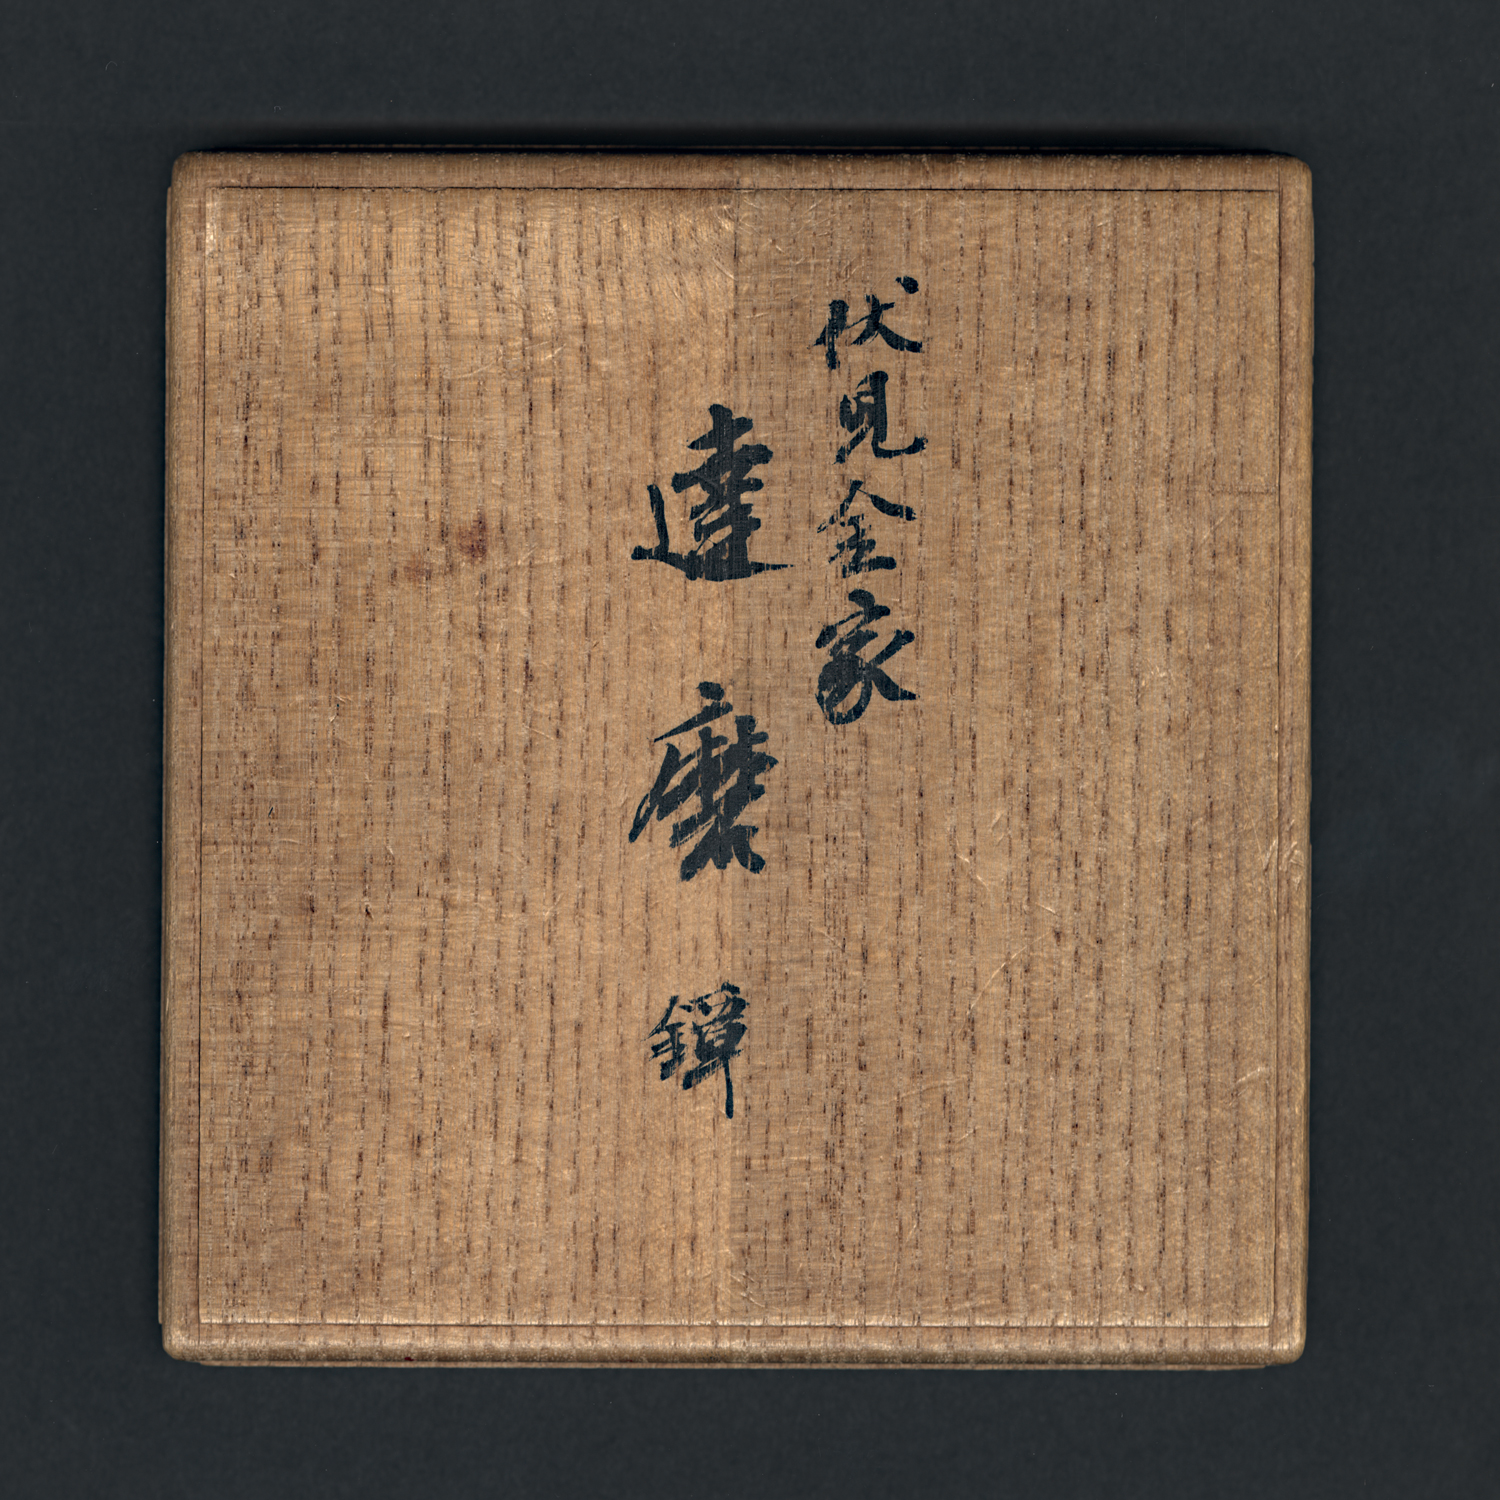 伏見金家
達磨鐔